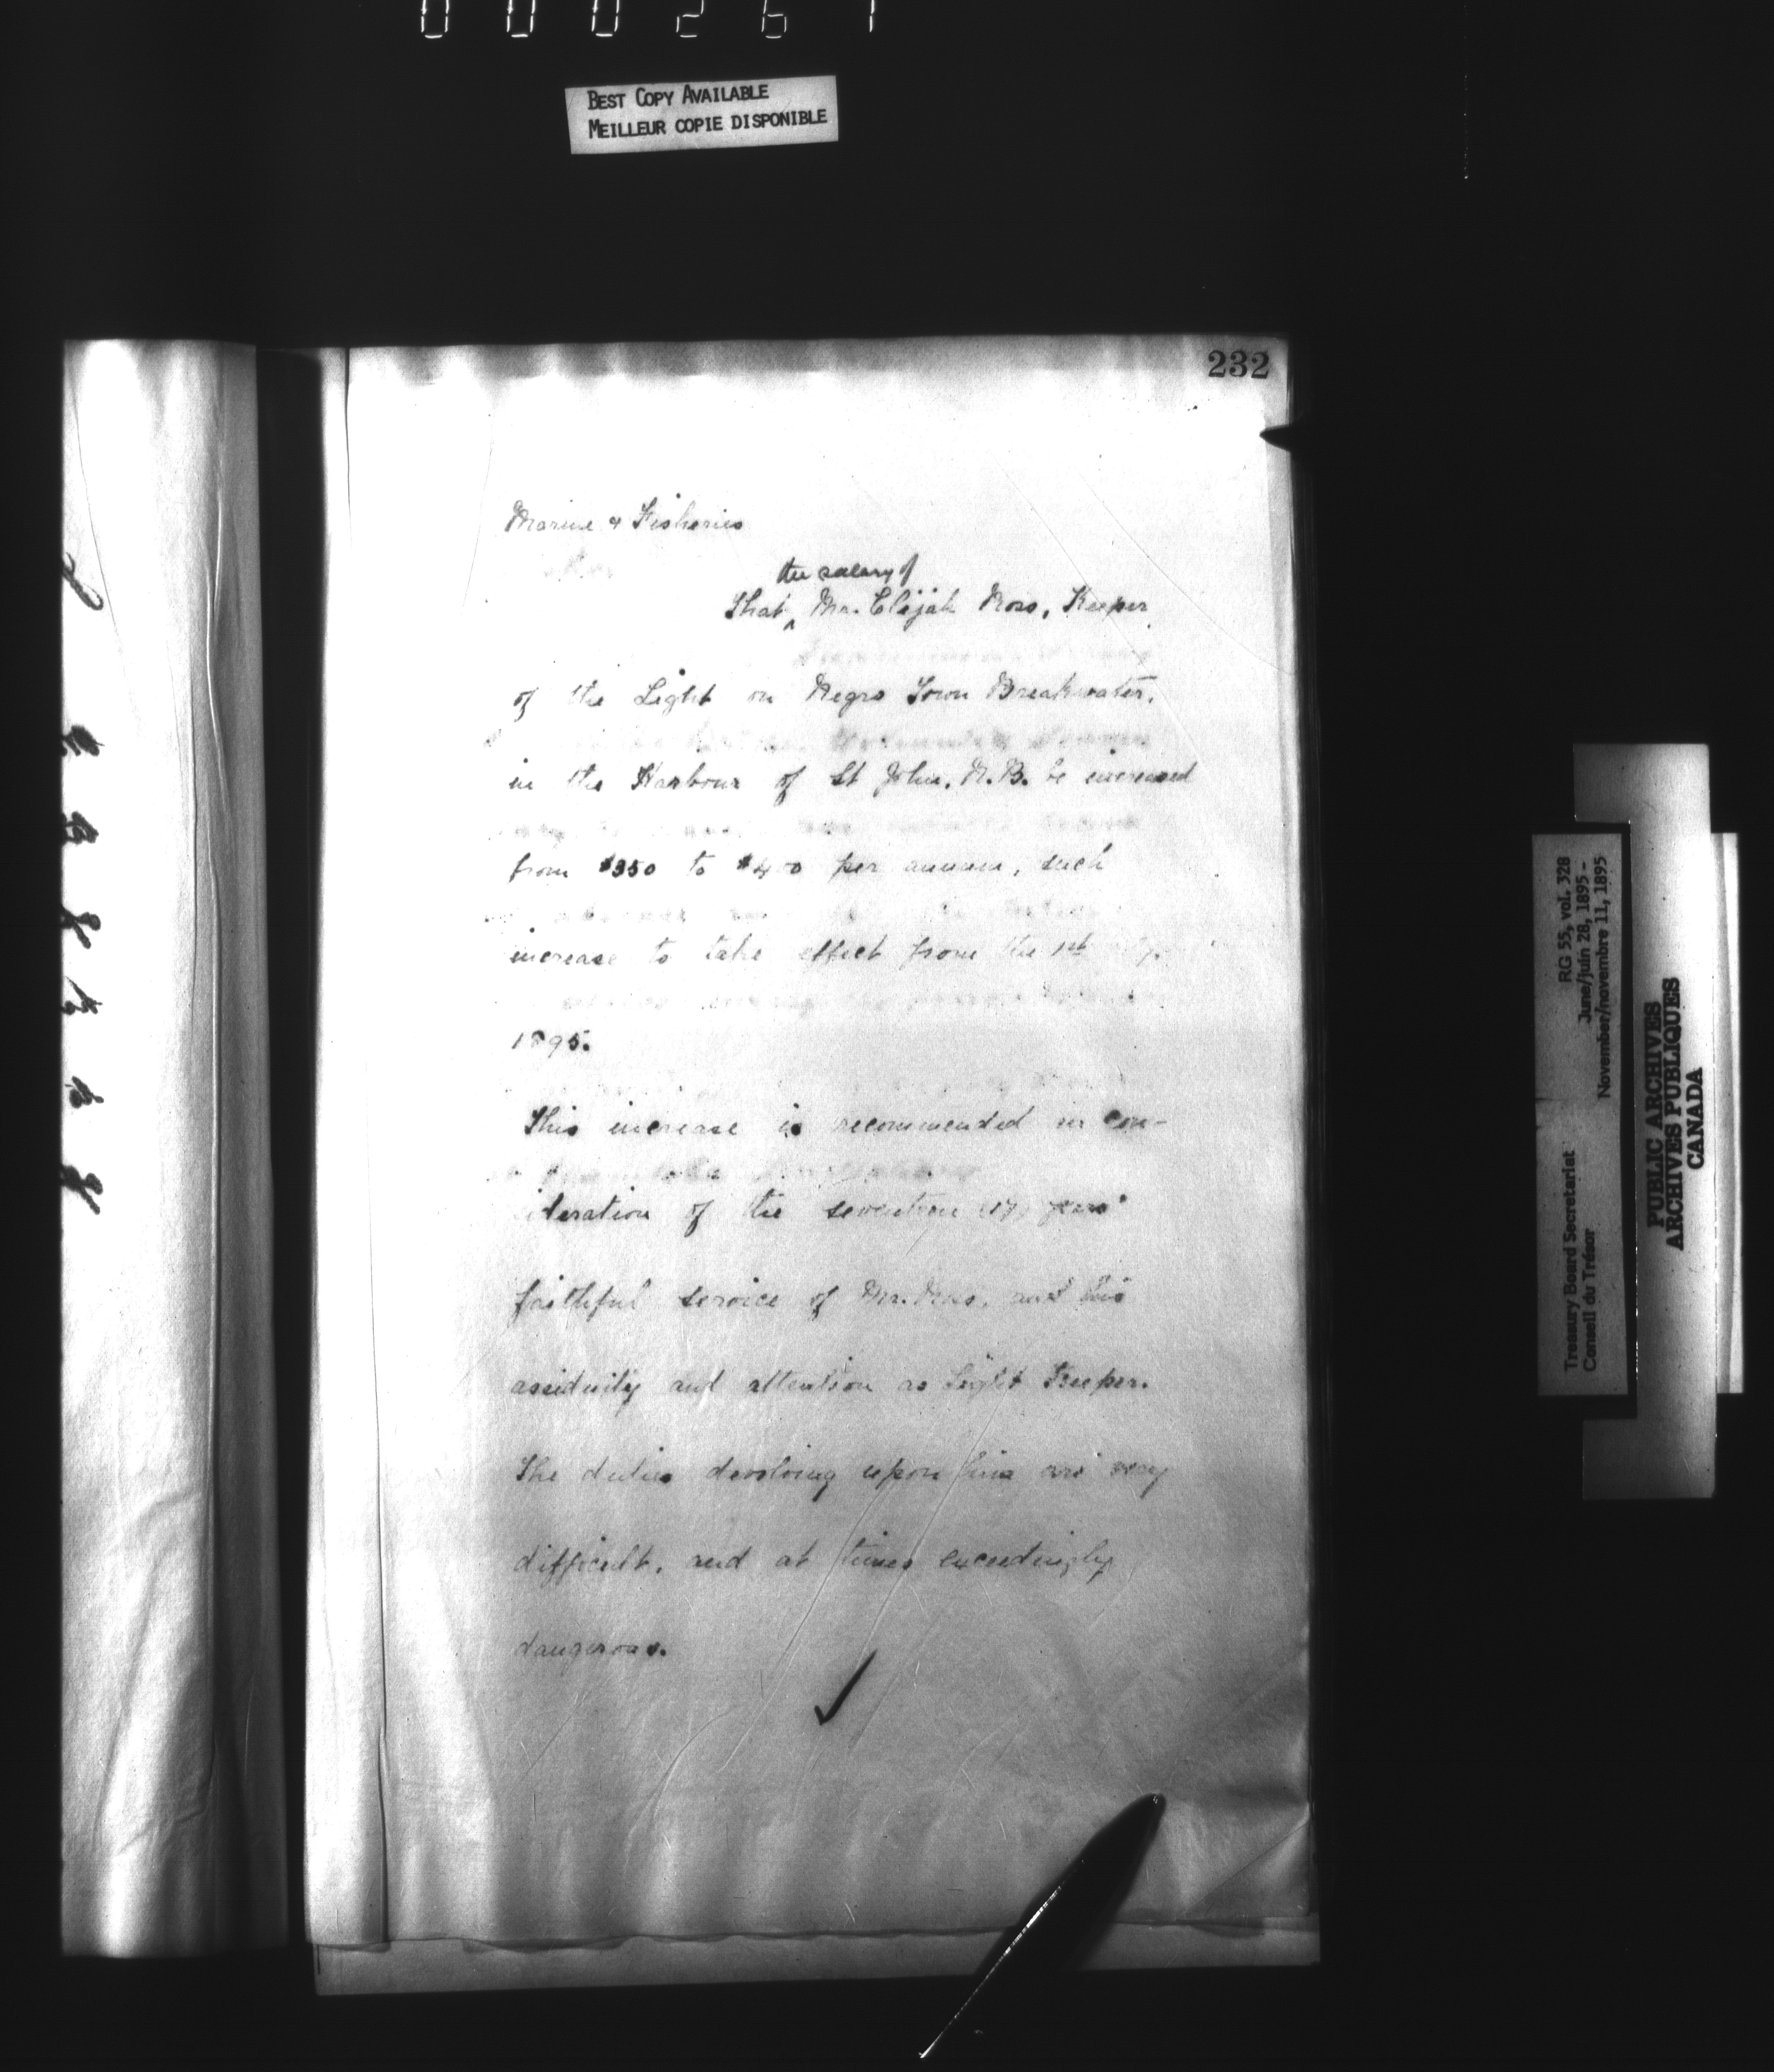 000267
BEST COPY AVAILABLE
MEILLEUR COPIE DISPONIBLE
232
Marine & Fisheries
the salary of
That ^ Mr. Elijah Ross, Keeper
of the Light on Negro Town Breakwater,
in the Harbour of St John, N.B. be increased
from $350 to $400 per annum, such
increase to take effect from the 1st
1895.
This increase is recommended in con-
ideration of the seventeen (17) years'
faithful service of Mr. Ross, and his
assiduity and attention as Light Keeper.
The duties devolving upon him are very
difficult, and at times exceedingly
dangerous.
RG 55, vol. 328
June/juin 28, 1895 -
November/novembre 11, 1895
Treasury Board Secretariat
Conseil du Trésor
PUBLIC ARCHIVES
ARCHIVES PUBLIQUES
CANADA